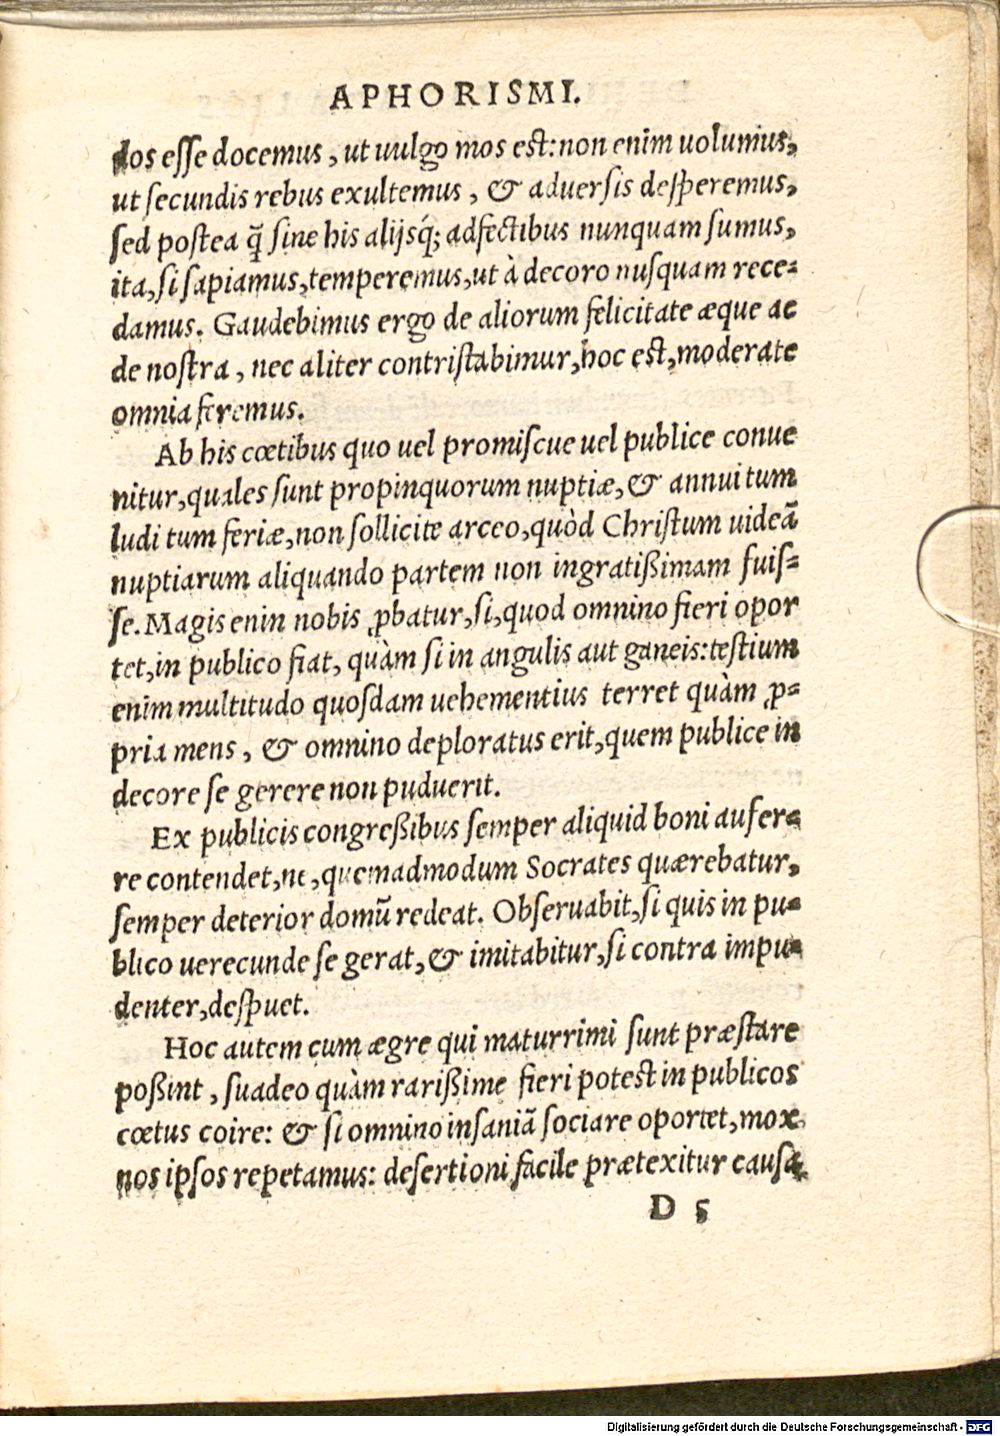 APHORISMI.
dos eſſe docemus, ut uulgo mos eſt: non enim uolumus,
ut ſecundis rebus exultemus, & aduerſis deſperemus,
ſed poſtea q̃ ſine his alijsq́; adfectibus nunquam ſumus,
ita, ſi ſapiamus, temperemus, ut à decoro nuſquam rece-
damus. Gaudebimus ergo de aliorum felicitate æque ac
de noſtra, nec aliter contriſtabimur, hoc eſt, moderate
omnia feremus.
Ab his cœtibus quo uel promiſcue uel publice conue
nitur, quales ſunt propinquorum nuptiæ, & annui tum
ludi tum feriæ, non ſollicite arceo, quòd Chriſtum uideã
nuptiarum aliquando partem non ingratißimam fuiſ-
ſe. Magis enin nobis ꝓbatur, ſi, quod omnino fieri opor
tet, in publico fiat, quàm ſi in angulis aut ganeis: teſtium
enim multitudo quoſdam uehementius terret quàm ꝓ-
pria mens, & omnino deploratus erit, quem publice in
decore ſe gerere non puduerit.
Ex publicis congreßibus ſemper aliquid boni aufer-
re contendet, ne, quemadmodum Socrates quærebatur,
ſemper deterior domũ redeat. Obſeruabit, ſi quis in pu-
blico uerecunde ſe gerat, & imitabitur, ſi contra impu-
denter, deſpuet.
Hoc autem cum ægre qui maturrimi ſunt præſtare
poßint, ſuadeo quàm rarißime fieri poteſt in publicos
cœtus coire: & ſi omnino inſaniã ſociare oportet, mox
nos ipſos repetamus: deſertioni facile prætexitur cauſa
D 5
Digitalisierung gefördert durch die Deutsche Forschungsgemeinschaft - DFG